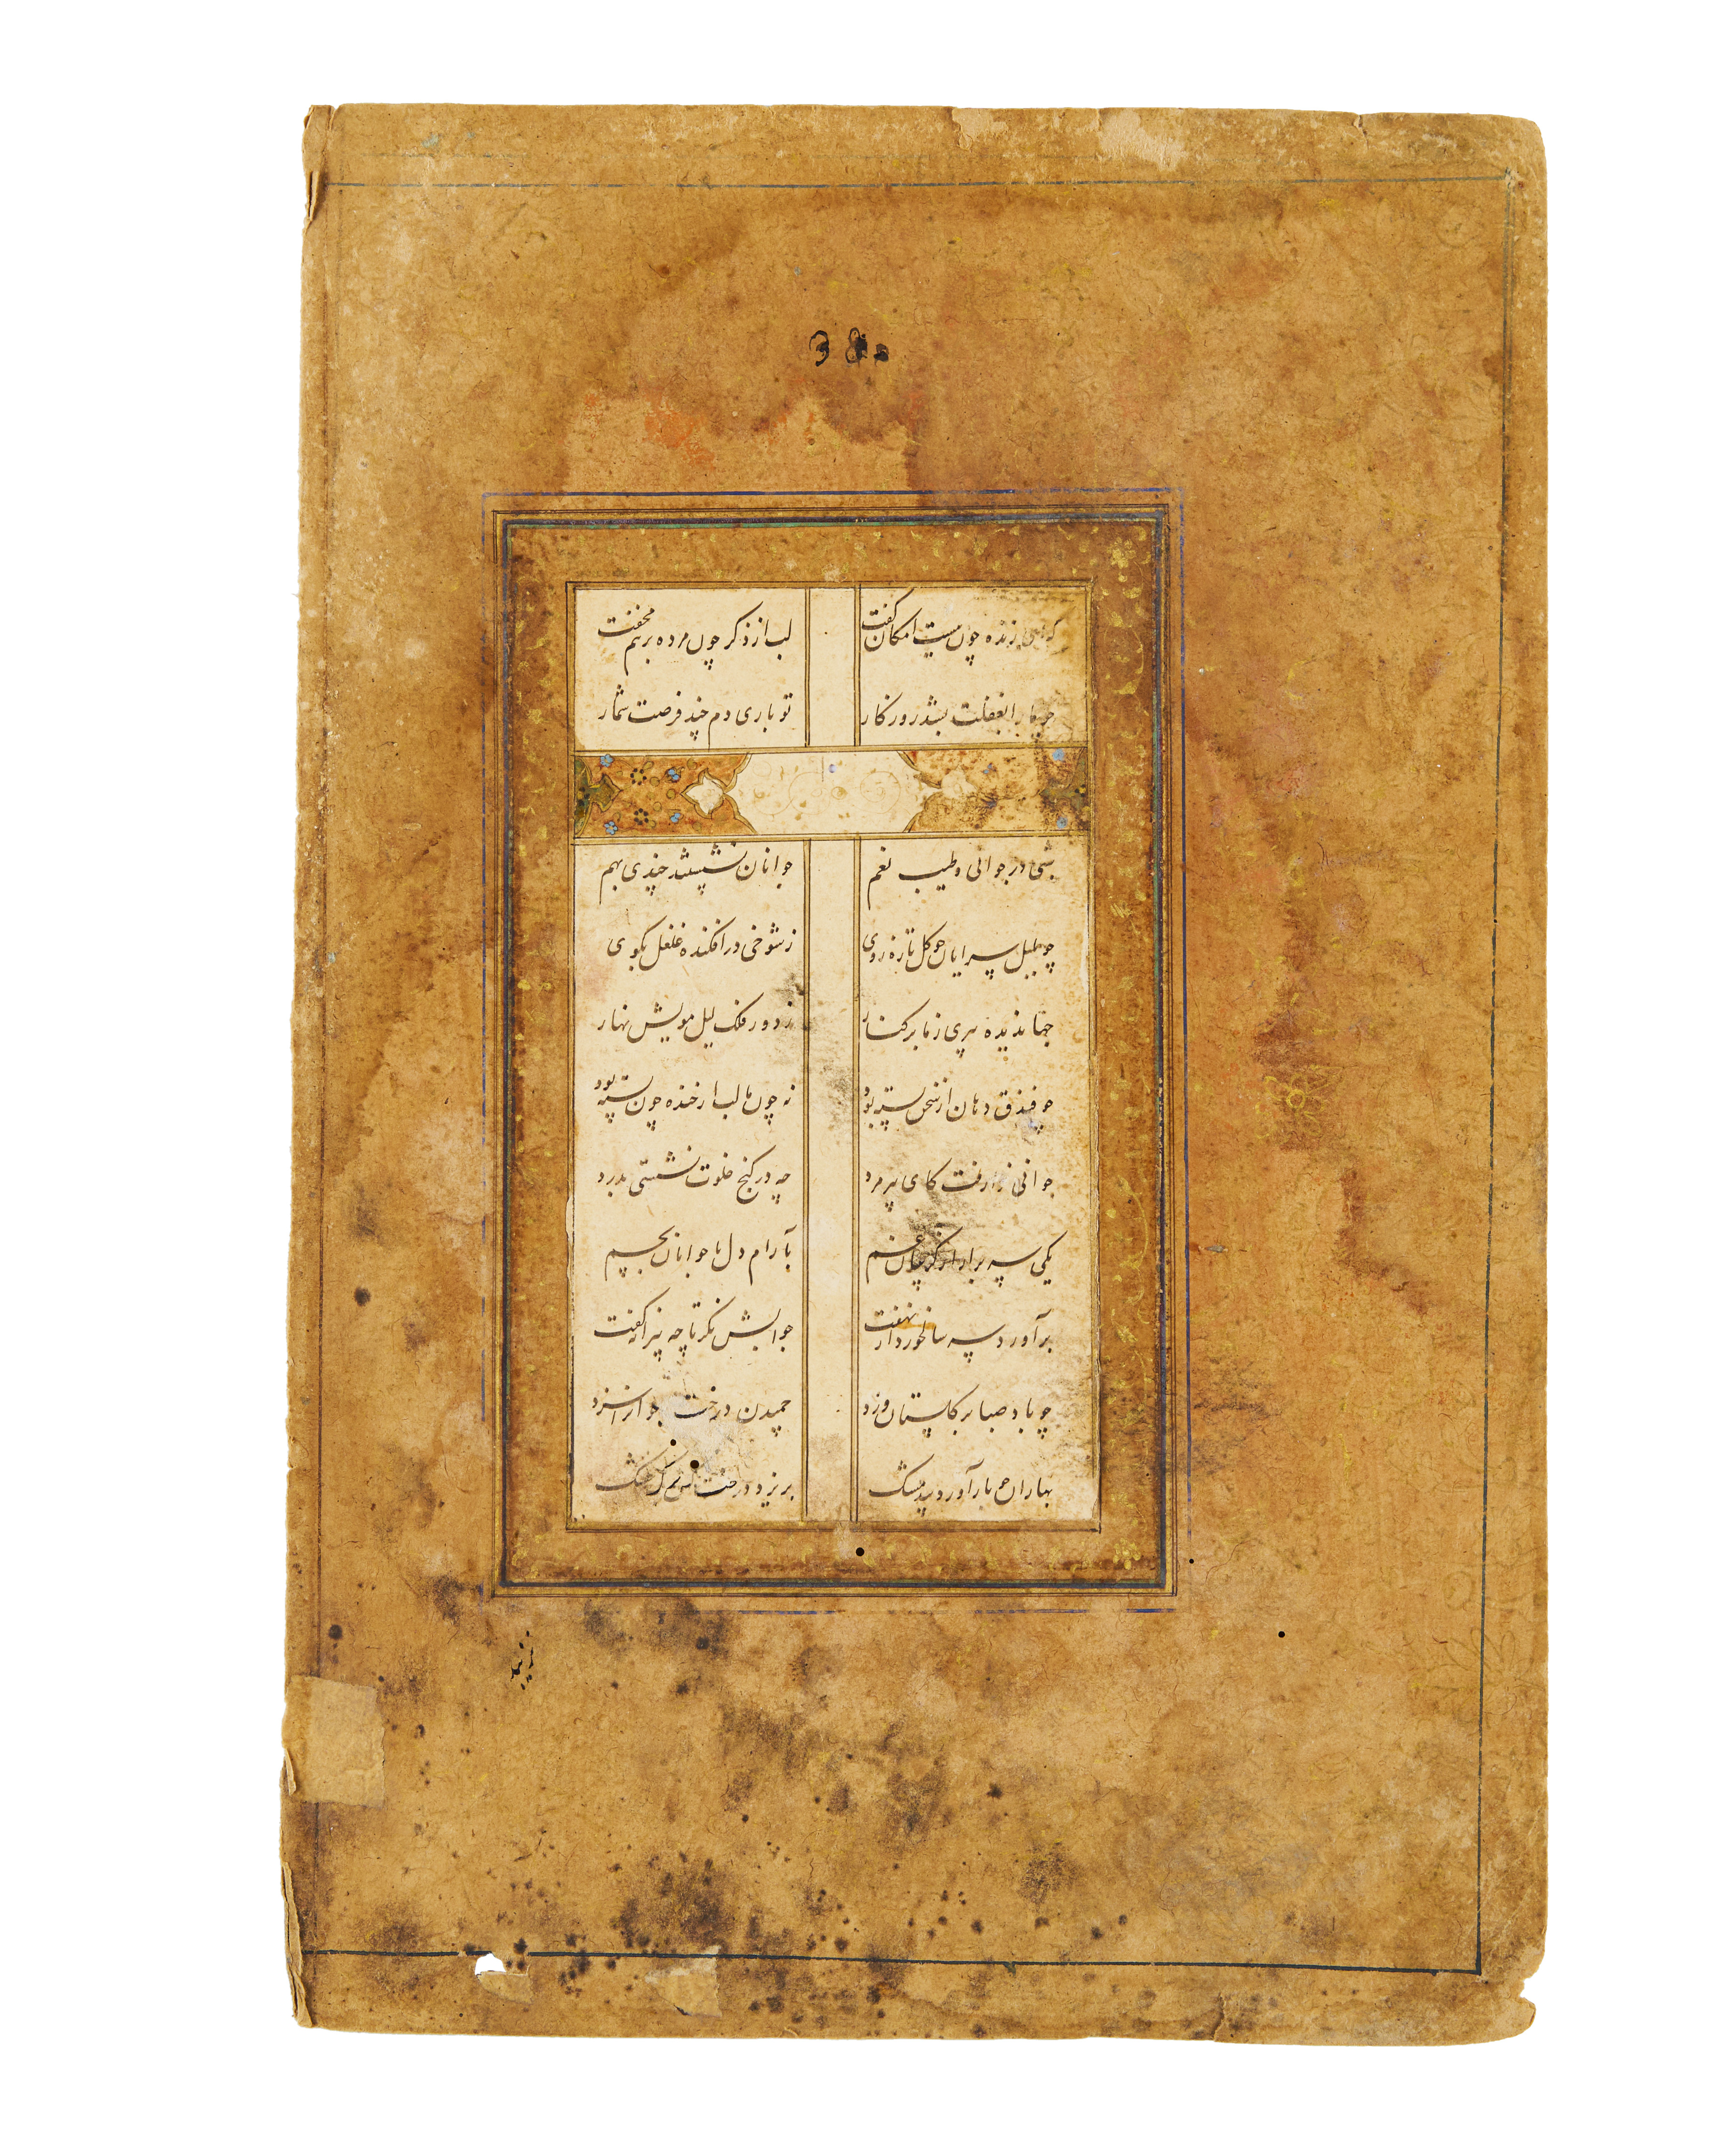 38
که ای زنده چون هست امکان گفت لب از ذکر چون مرده برهم مخفت
چو ما را بغفلت بشد روزکار تو باری دم چند فرصت شمار
شبی در جوانی و طیب نعم جوانان نشستند چندی بهم
چو بلبل سرایان چو کل تازه روی ز شوخی در افکنده غلغل بکوی
جهاندیده پیری ز ما برکنار ز دور فلک لیل مویش نهار
چو فندق دهان از سخن بسته بود نه چون ما لب از خنده چون پسته بود
جوانی فرا رفت کای پیر مرد چه در کنج خلوت نشستی بدرد
یکی سر برار از کریبان غم بآرام دل با جوانان بچم
برآورد سر سالخورد از نهفت جوابش نکر تا چه پیرانه کفت
چو باد صبا بر کلستان وزد چمیدن درخت جوانرا سزد
بهاران چو باد آورد بید مشک بریزد درخت کشن برک خشک
نزیبد